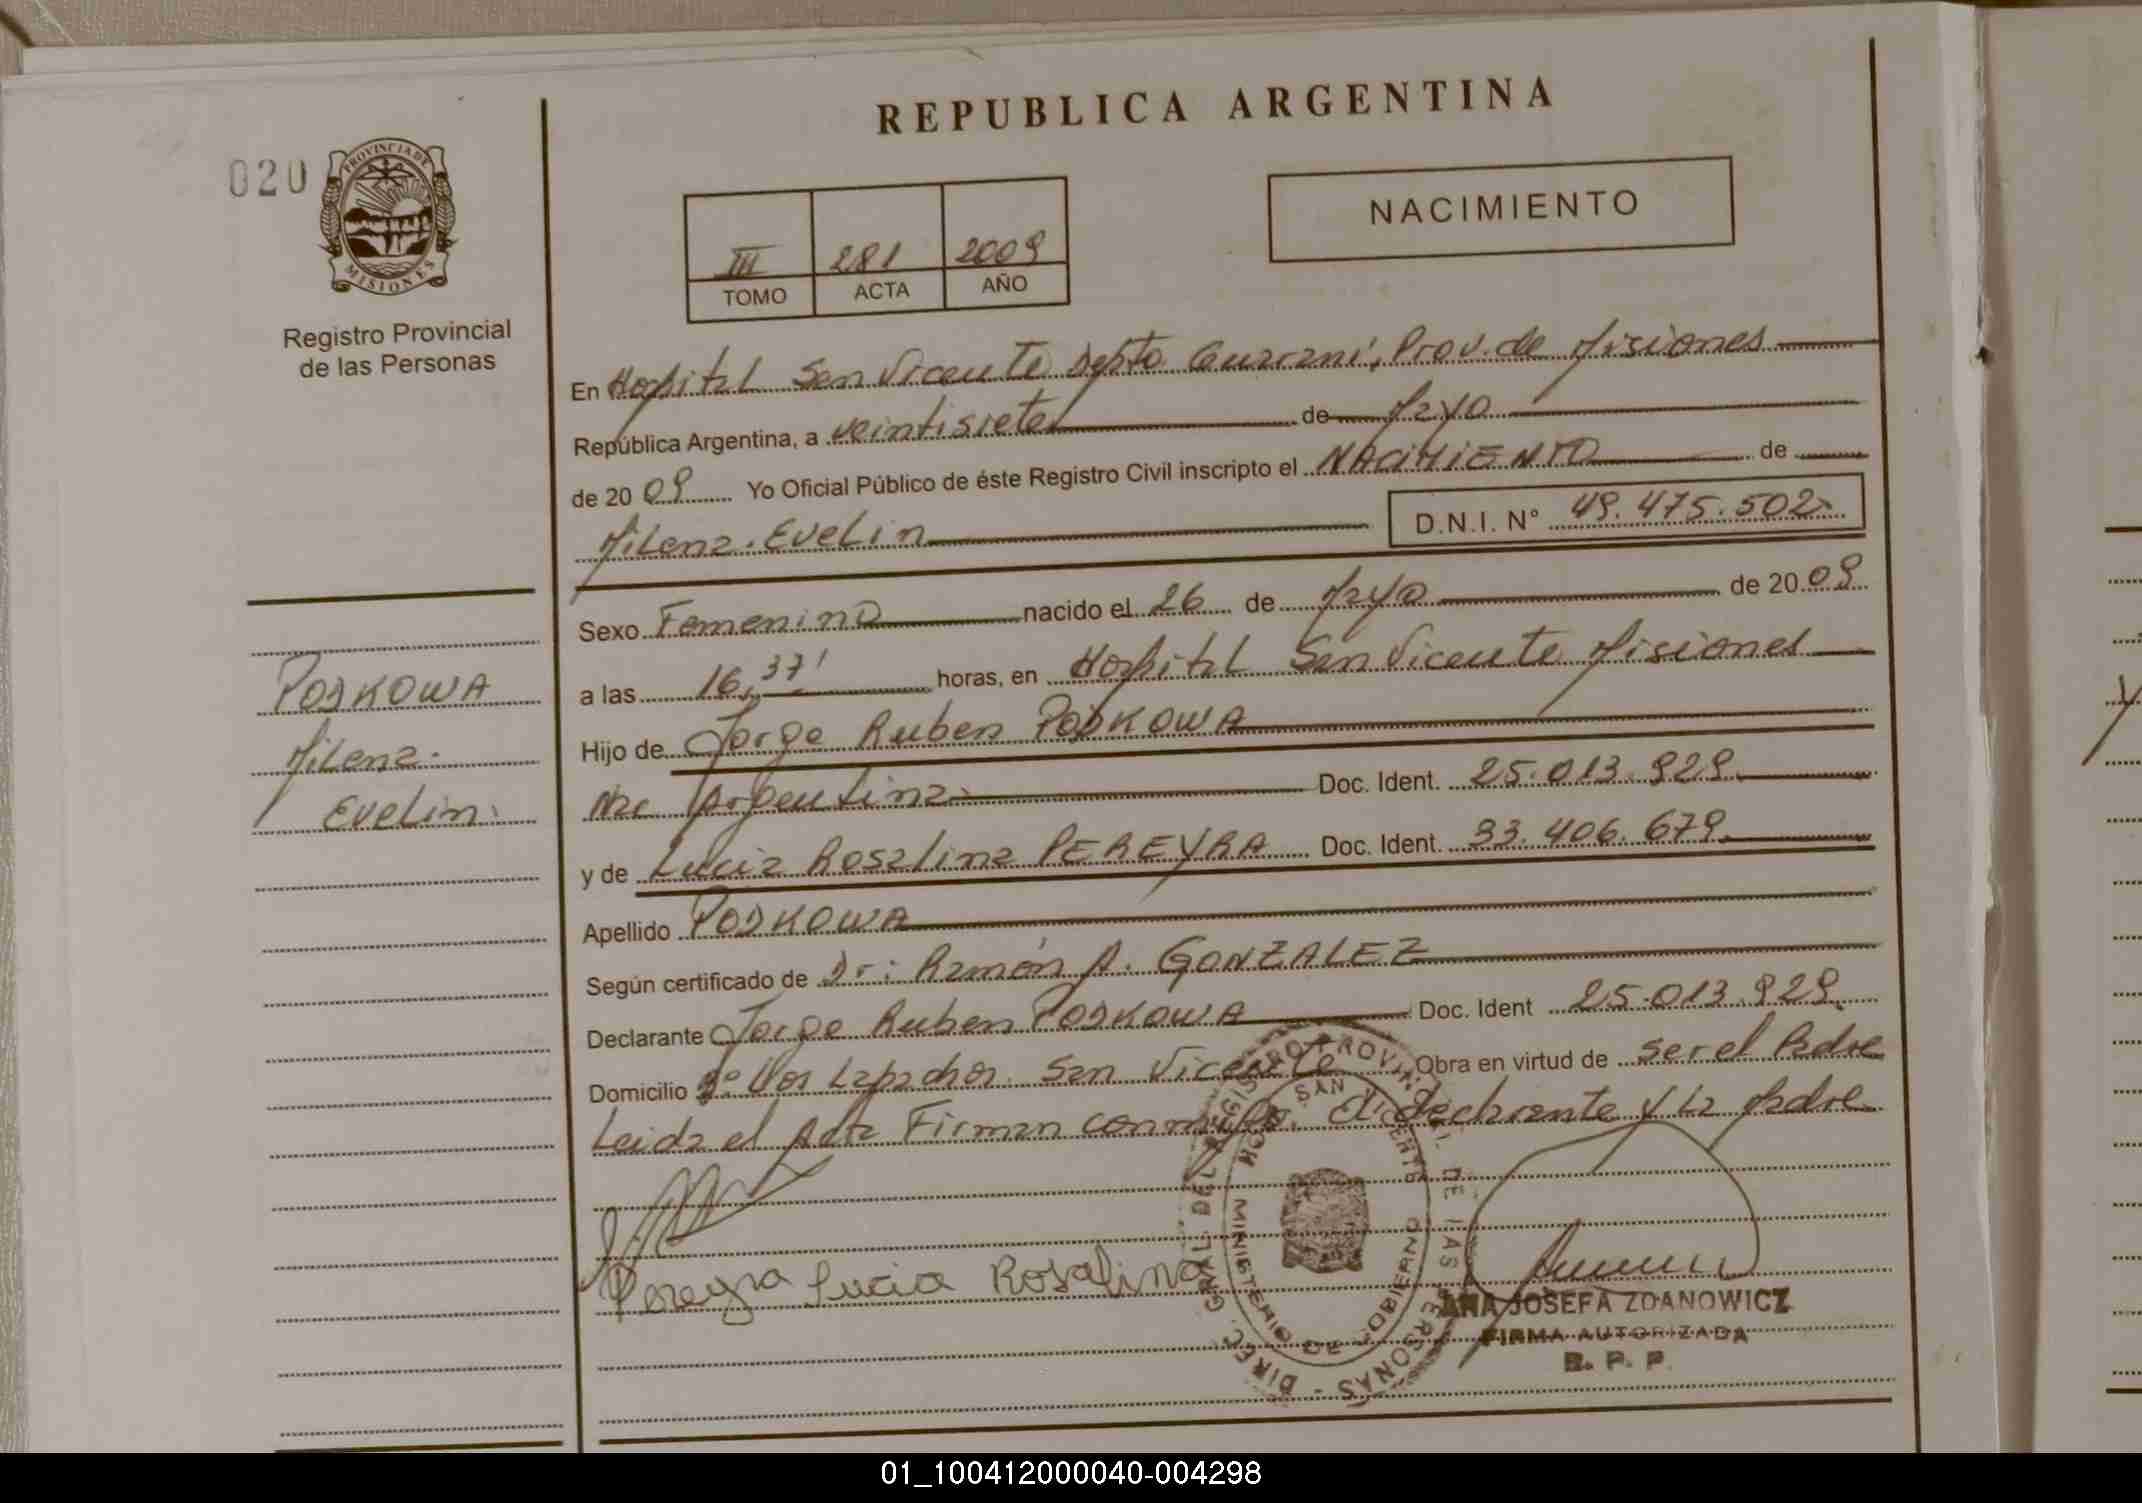 REPUBLICA ARGENTINA
020
PROVINCIA DE
MISIONES
Registro Provincial
de las Personas
NACIMIENTO
III 281 2009
TOMO ACTA AÑO
En Hospital San Vicente Depto Guarani, Prov. de Misiones
República Argentina, a veintisiete de Mayo
de 20 09 Yo Oficial Público de éste Registro Civil inscripto el NACIMIENTO de
Milena Evelin
D.N.I. N° 49.475.502
Sexo Femenino nacido el 26 de Mayo de 20 09
a las 16,37' horas, en Hospital San Vicente Misiones
Hijo de Jorge Ruben POSKOWA
Nac Argentina Doc. Ident. 25.013.929
y de Lucia Rosalina PEREYRA Doc. Ident. 33.406.679
Apellido POSKOWA
Según certificado de Dr: Ramón A. GONZALEZ
Declarante Jorge Ruben POSKOWA Doc. Ident 25.013.929
Domicilio Bº Los Lapachos San Vicente Obra en virtud de ser el Padre
Leida el Acta Firman conmigo. El declarante y La Madre
POSKOWA
Milena
Evelin
Pereyra Lucia Rosalina
DIREC. GRAL. DEL REGISTRO PROVINCIAL DE LAS PERSONAS
MINISTERIO DE GOBIERNO
SAN VICENTE
ANA JOSEFA ZDANOWICZ
FIRMA AUTORIZADA
R. P. P.
01_100412000040-004298